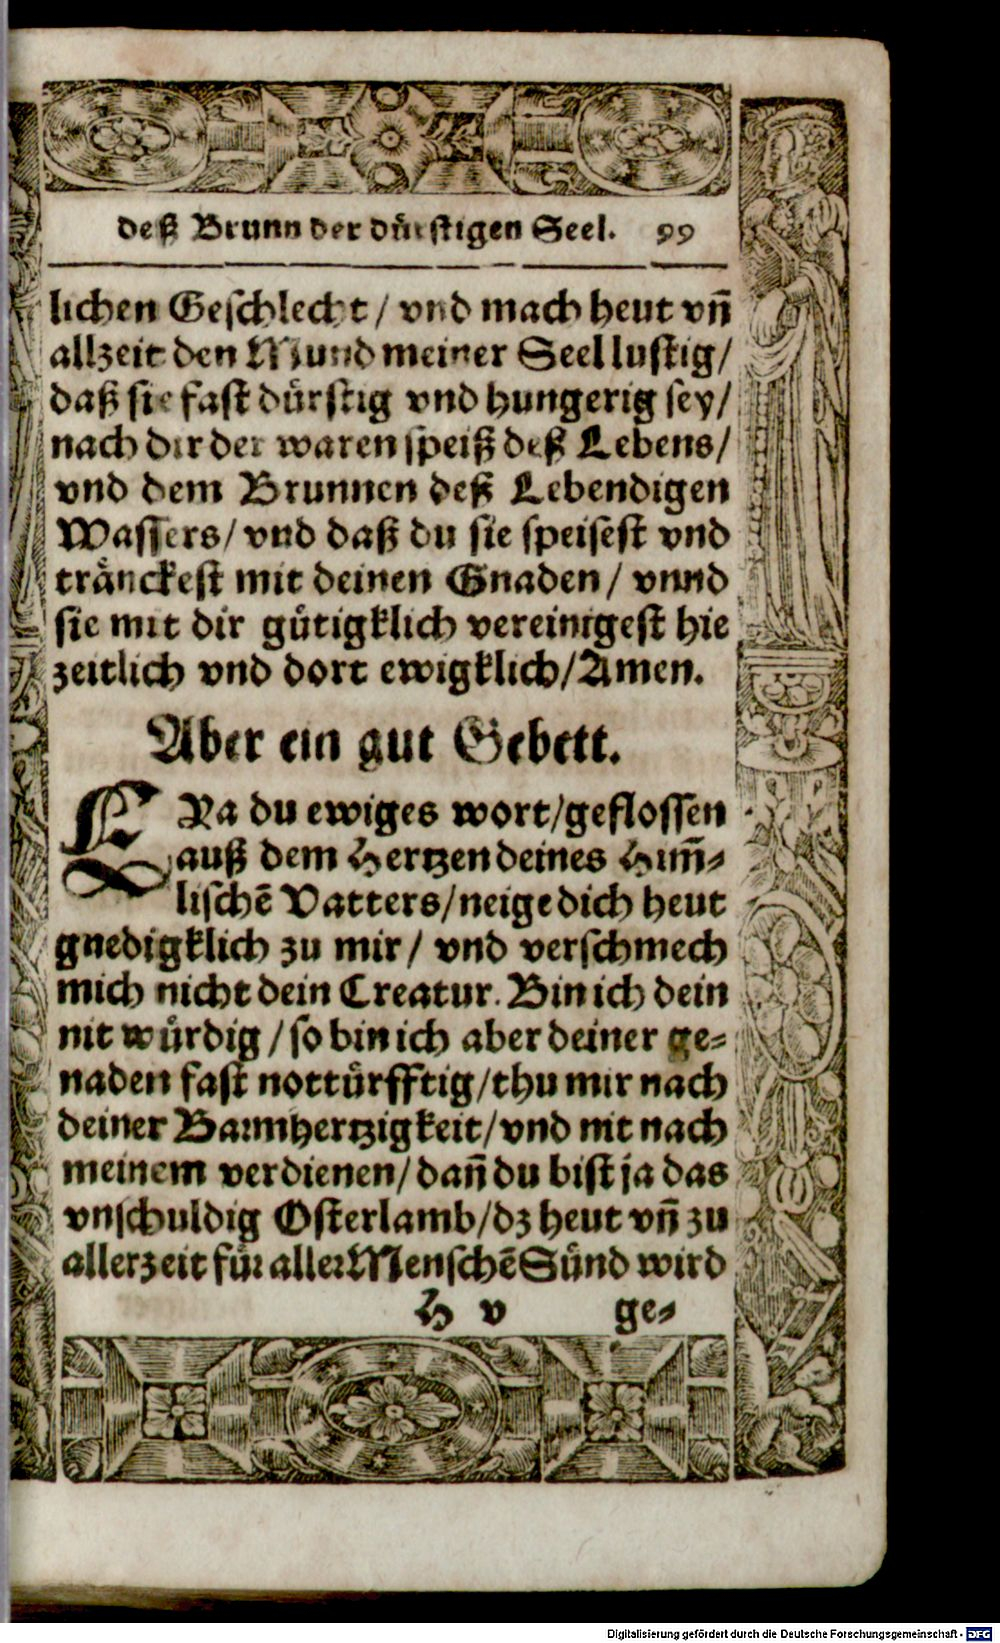 deß Brunn der dürstigen Seel. 99
lichen Geschlecht / vnd mach heut vñ
allzeit den Mund meiner Seel lustig /
daß sie fast dürstig vnd hungerig sey /
nach dir der waren speiß deß Lebens /
vnd dem Brunnen deß Lebendigen
Wassers / vnd daß du sie speisest vnd
tränckest mit deinen Gnaden / vnnd
sie mit dir gütigklich vereinigest hie
zeitlich vnd dort ewigklich / Amen.
Aber ein gut Gebett.
EYa du ewiges wort / geflossen
auß dem Hertzen deines Him̃-
lischē Vatters / neige dich heut
gnedigklich zu mir / vnd verschmech
mich nicht dein Creatur. Bin ich dein
nit würdig / so bin ich aber deiner ge-
naden fast nottürfftig / thu mir nach
deiner Barmhertzigkeit / vnd nit nach
meinem verdienen / dañ du bist ja das
vnschuldig Osterlamb / dz heut vñ zu
allerzeit für aller Menschē Sünd wird
H v ge-
Digitalisierung gefördert durch die Deutsche Forschungsgemeinschaft - DFG